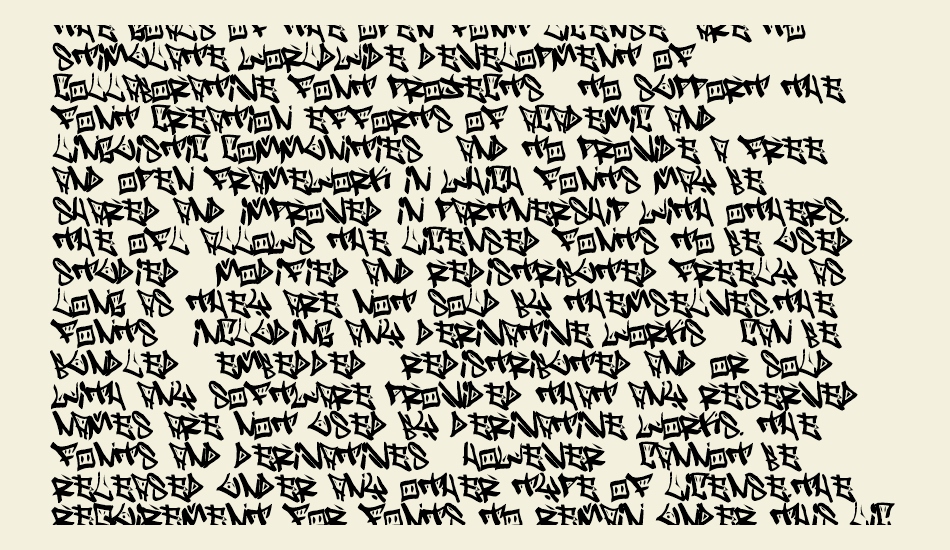 THE GOALS OF THE OPEN FONT LICENSE ARE TO
STIMULATE WORLDWIDE DEVELOPMENT OF
COLLABORATIVE FONT PROJECTS TO SUPPORT THE
FONT CREATION EFFORTS OF ACADEMIC AND
LINGUISTIC COMMUNITIES AND TO PROVIDE A FREE
AND OPEN FRAMEWORK IN WHICH FONTS MAY BE
SHARED AND IMPROVED IN PARTNERSHIP WITH OTHERS.
THE OFL ALLOWS THE LICENSED FONTS TO BE USED
STUDIED MODIFIED AND REDISTRIBUTED FREELY AS
LONG AS THEY ARE NOT SOLD BY THEMSELVES.THE
FONTS INCLUDING ANY DERIVATIVE WORKS CAN BE
BUNDLED EMBEDDED REDISTRIBUTED AND OR SOLD
WITH ANY SOFTWARE PROVIDED THAT ANY RESERVED
NAMES ARE NOT USED BY DERIVATIVE WORKS. THE
FONTS AND DERIVATIVES HOWEVER CANNOT BE
RELEASED UNDER ANY OTHER TYPE OF LICENSE.THE
REQUIREMENT FOR FONTS TO REMAIN UNDER THIS LIC